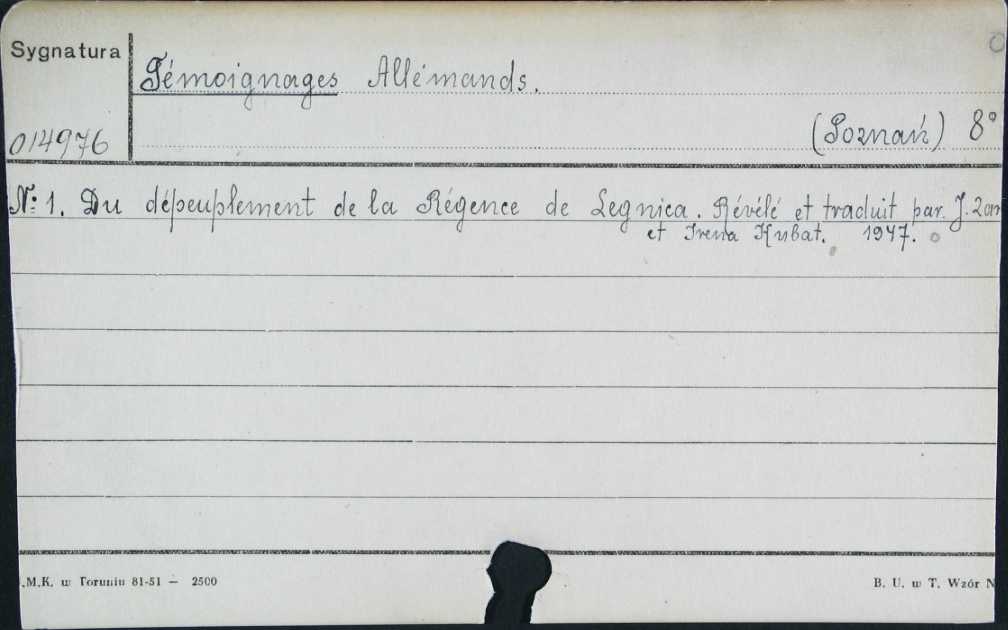 Sygnatura
Témoignages Allémands.
014976
(Poznań) 8°
N: 1. Du dépeuplement de la Régence de Legnica. Révélé et traduit par. J. Zan
et Irena Kubat. 1947.
.M.K. w Toruniu 81-51 — 2500
B. U. w T. Wzór N